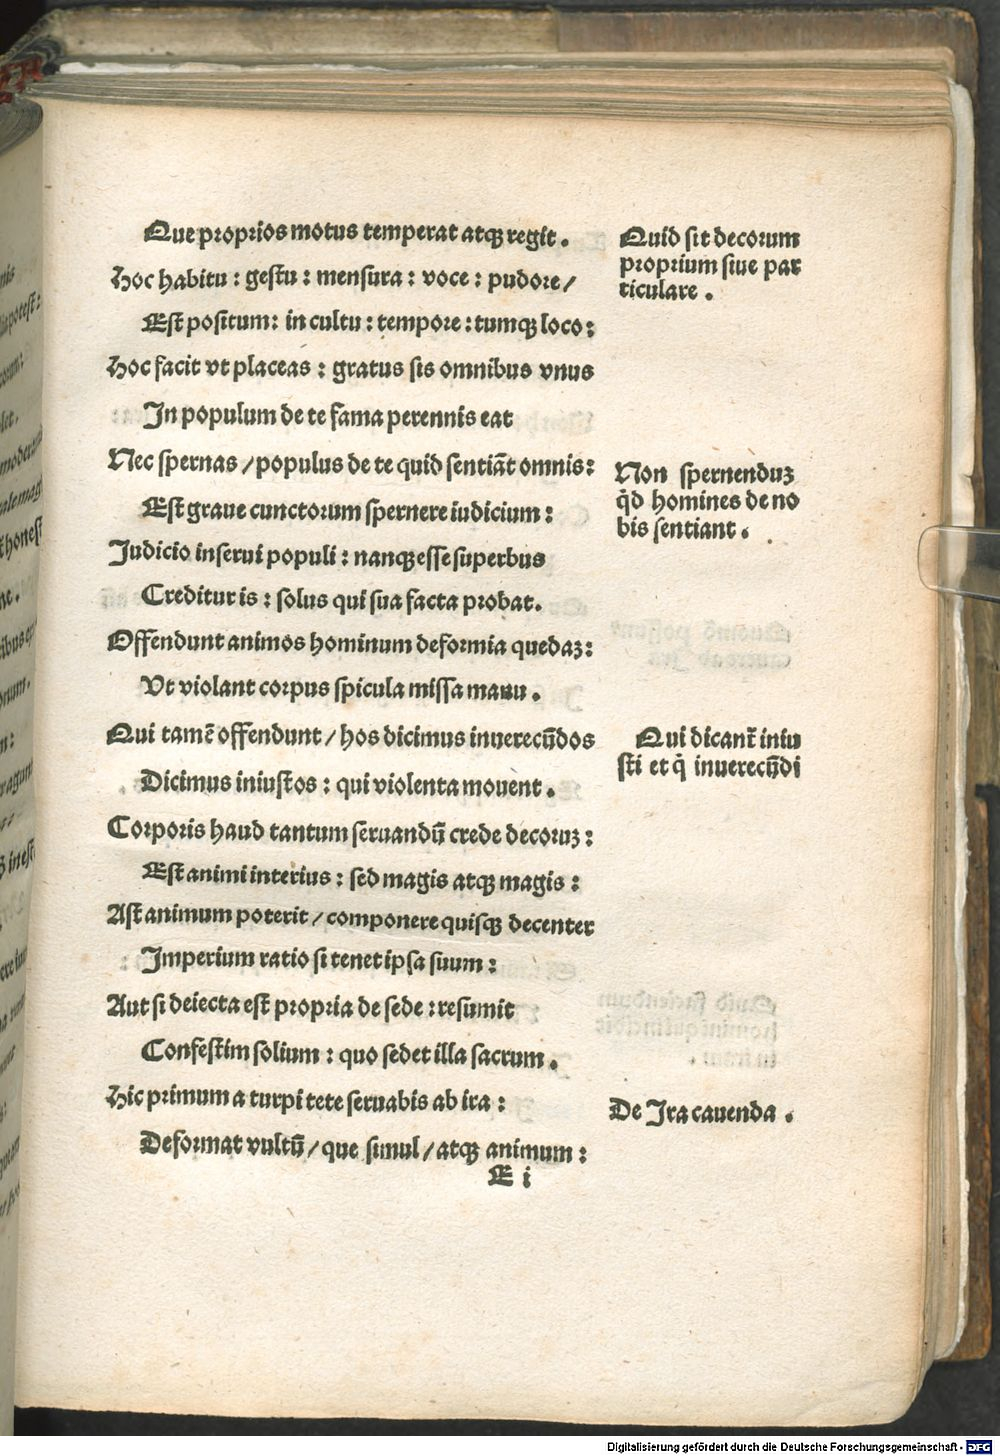 Que proprios motus temperat atqꝫ regit.
Hoc habitu: gestu: mensura: voce: pudore/
Est positum: in cultu: tempore: tumqꝫ loco:
Hoc facit vt placeas: gratus sis omnibus vnus
In populum de te fama perennis eat
Nec spernas/populus de te quid sentiāt omnis:
Est graue cunctorum spernere iudicium:
Judicio inserui populi: nanqꝫ esse superbus
Creditur is: solus qui sua facta probat.
Offendunt animos hominum deformia quedaꝫ:
Vt violant corpus spicula missa manu.
Qui tamē offendunt/hos dicimus inuerecūdos
Dicimus iniustos: qui violenta mouent.
Corporis haud tantum seruandū crede decoruꝫ:
Est animi interius: sed magis atqꝫ magis:
Ast animum poterit/componere quisqꝫ decenter
Imperium ratio si tenet ipsa suum:
Aut si deiecta est propria de sede: resumit
Confestim solium: quo sedet illa sacrum.
Hic primum a turpi tete seruabis ab ira:
Deformat vultū/que simul/atqꝫ animum:
E i
Quid sit decorum
proprium siue par
ticulare.
Non spernenduꝫ
qd̄ homines de no
bis sentiant.
Qui dicant̄ iniu
sti et q̄ inuerecūdi
De Ira cauenda.
Digitalisierung gefördert durch die Deutsche Forschungsgemeinschaft - DFG